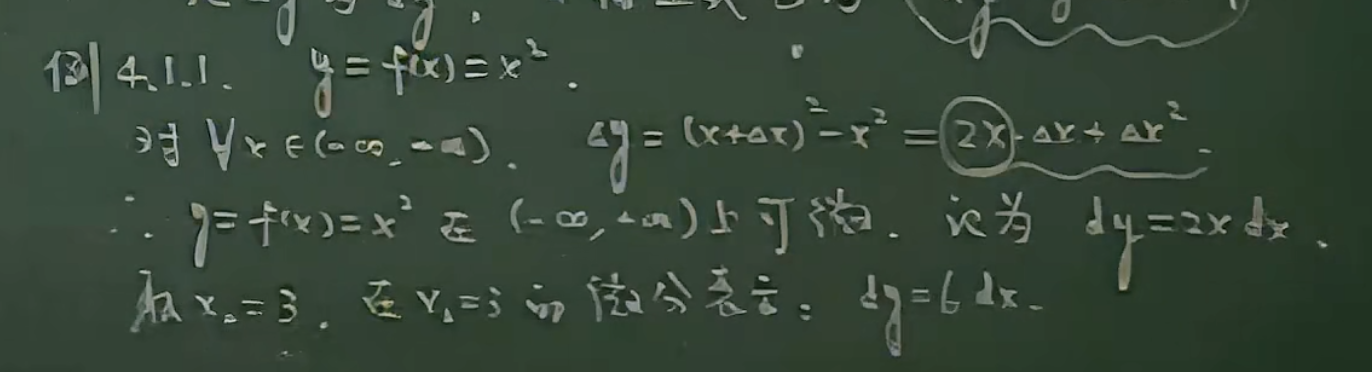 例4.1.1. y=f(x)=x².
对∀x∈(-∞,+∞). Δy=(x+Δx)²-x²=2x·Δx+Δx².
∴ y=f(x)=x² 在(-∞,+∞)上可微. 记为 dy=2xdx.
如x₀=3. 在x₀=3的微分表示: dy=6dx.